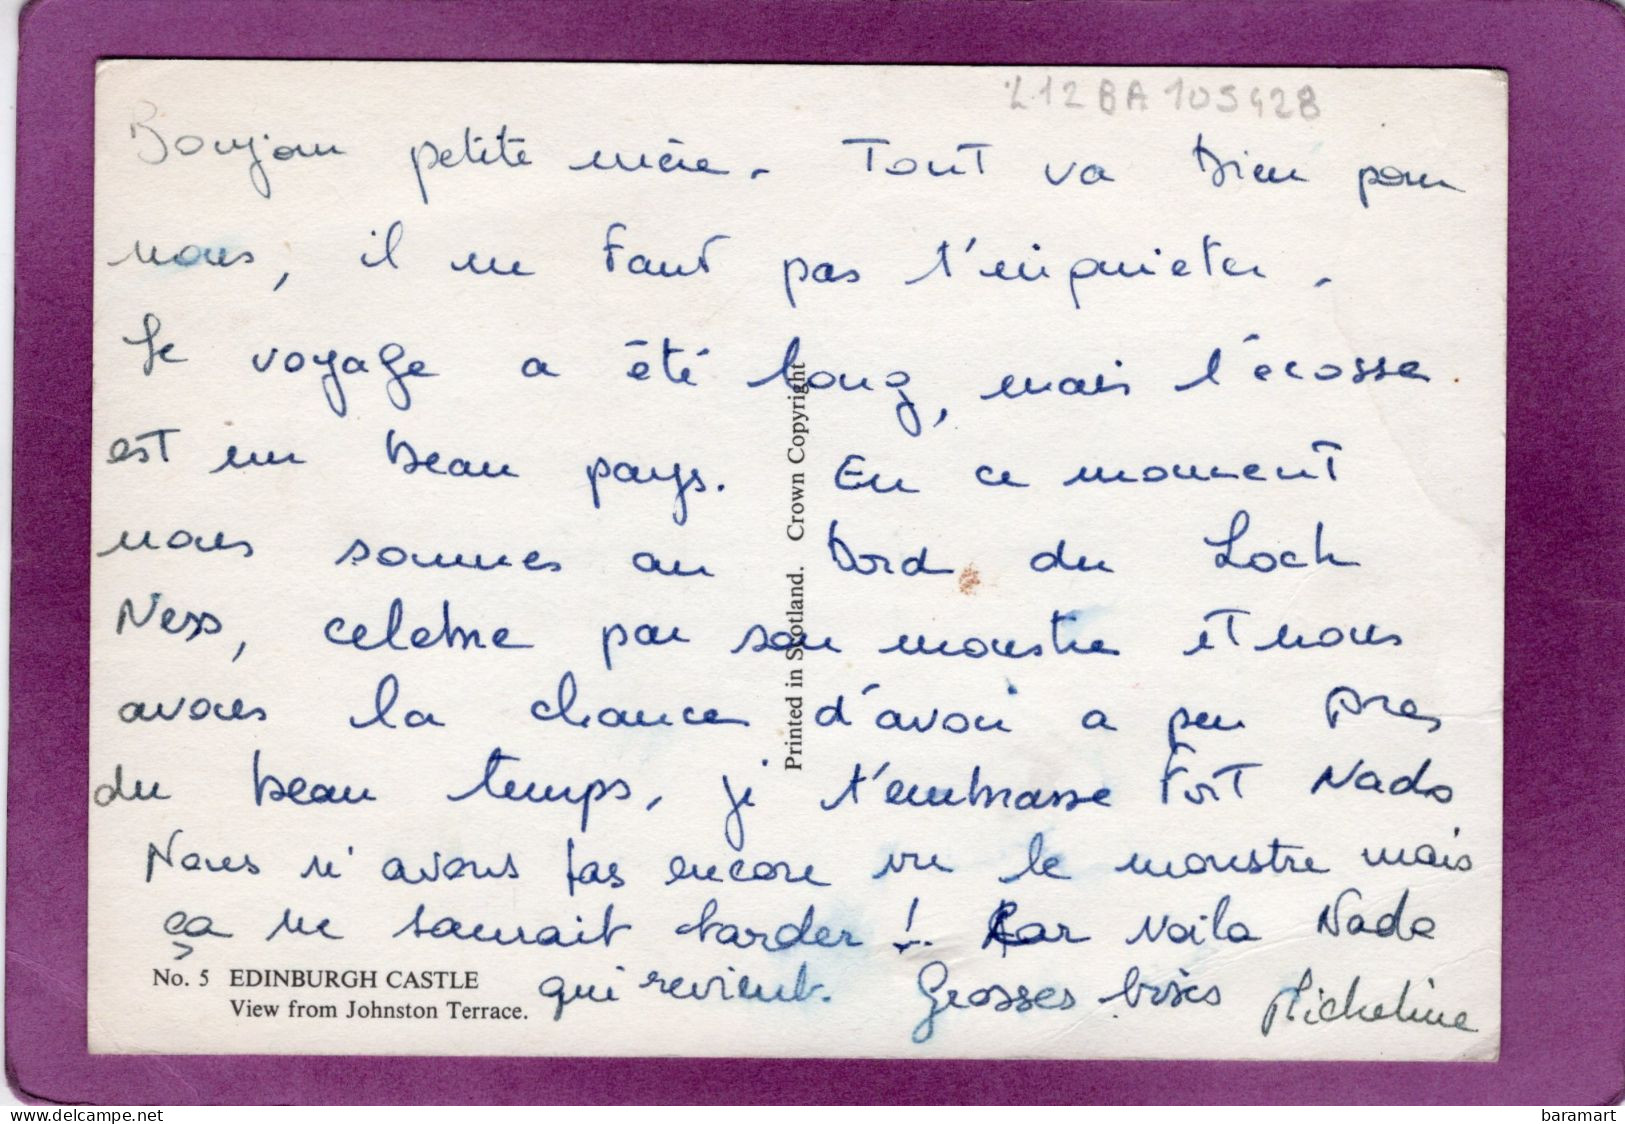 L12BA105428
Bonjour petite mère. Tout va bien pour
nous, il ne faut pas t'inquieter.
Le voyage a été long, mais l'écosse
est un beau pays. En ce moment
nous sommes au bord du Loch
Ness, celebre par son monstre et nous
avons la chance d'avoir a peu pres
du beau temps, je t'embrasse fort Nado
Nous n'avons pas encore vu le monstre mais
ça ne saurait tarder ! Car voila Nado
qui revient. Grosses bises Micheline
No. 5 EDINBURGH CASTLE
View from Johnston Terrace.
Printed in Scotland. Crown Copyright
baramart